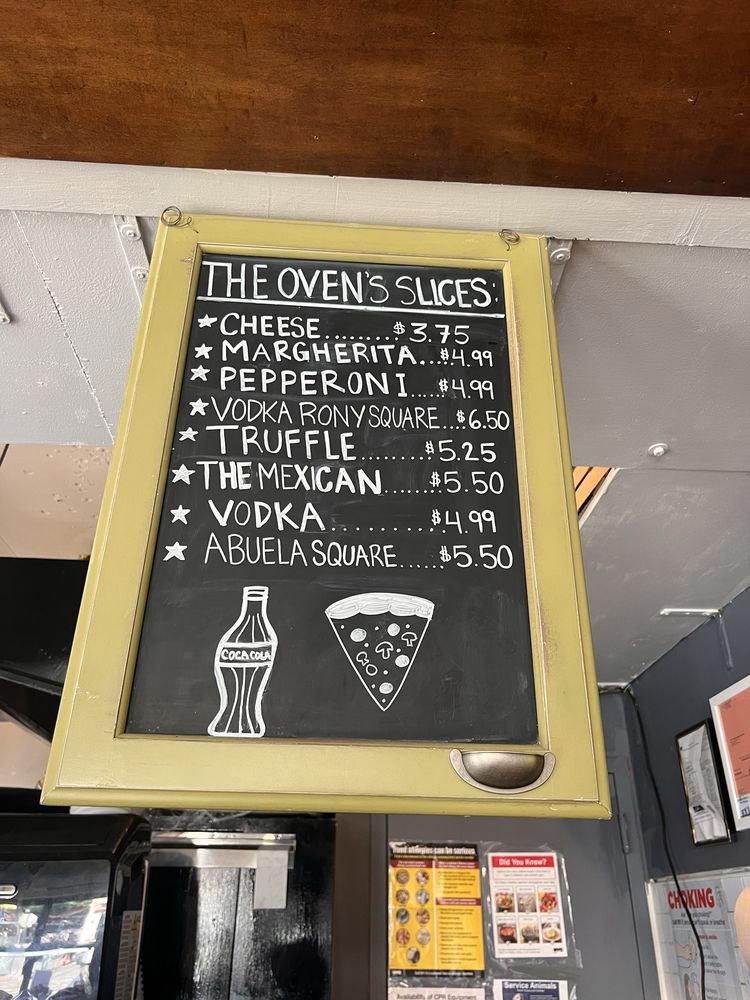 THE OVEN'S SLICES:
★ CHEESE......... $3.75
★ MARGHERITA....$4.99
★ PEPPERONI.....$4.99
★ VODKA RONY SQUARE...$6.50
★ TRUFFLE........$5.25
★ THE MEXICAN.......$5.50
★ VODKA..........$4.99
★ ABUELA SQUARE.....$5.50
COCA COLA
Food allergies can be serious
Did You Know?
CHOKING
Availability of CPR Equipment
Service Animals